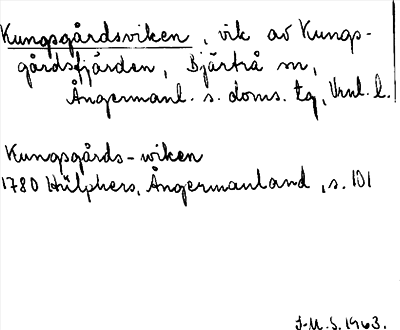 Kungsgårdsviken, vik av Kungs-
gårdsfjärden, Bjärtrå sn,
Ångermanl. s. doms. tg, Vrnl. l.
Kungsgårds-wiken
1780 Hülphers, Ångermanland, s. 101
J-M. S. 1963.